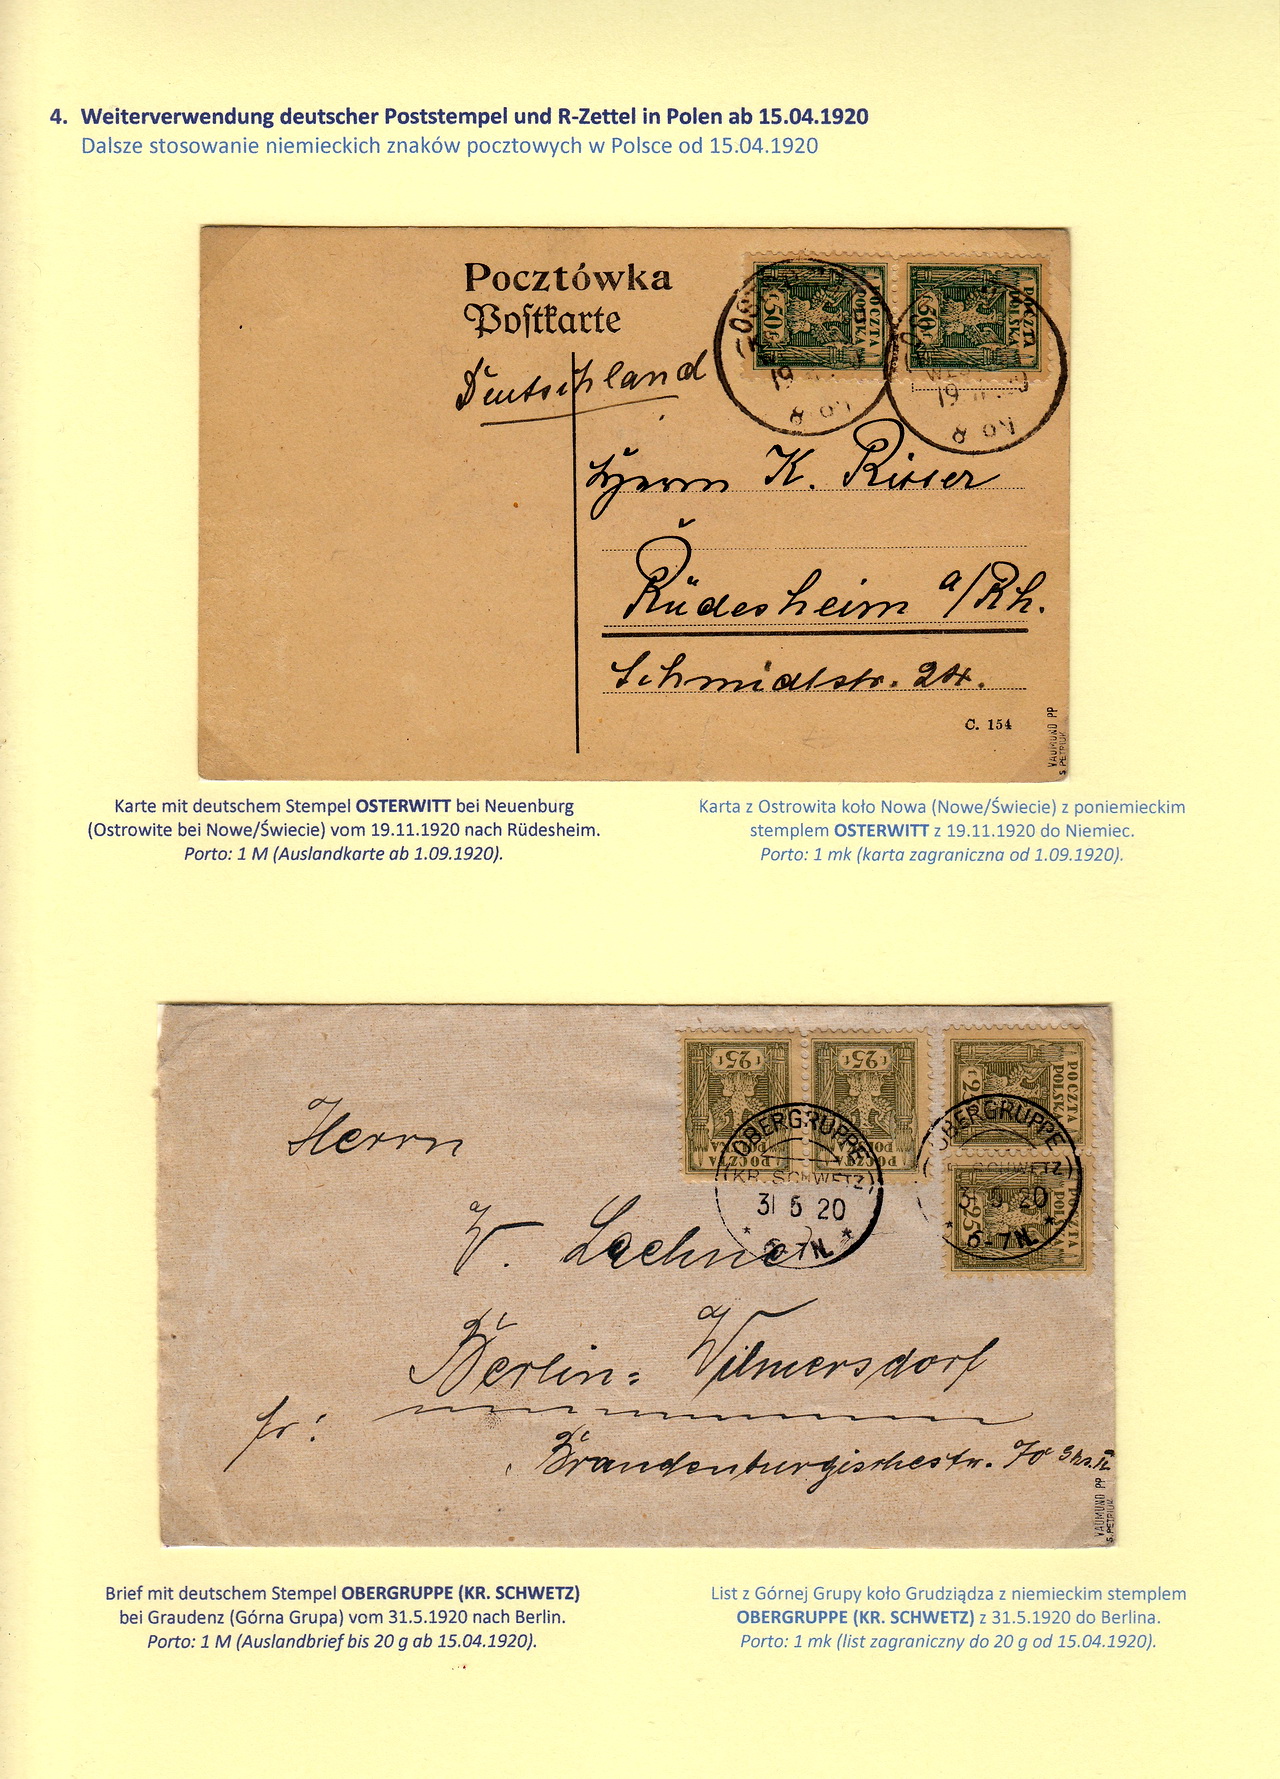 4. Weiterverwendung deutscher Poststempel und R-Zettel in Polen ab 15.04.1920
Dalsze stosowanie niemieckich znaków pocztowych w Polsce od 15.04.1920
Pocztówka
Postkarte
Deutschland
POCZTA POLSKA 50f
POCZTA POLSKA 50f
19
19
Herrn K. Risser
Rüdesheim a/Rh.
Schmidtstr. 24.
C. 154
VAUMUND PP
S. PETRIUK
Karte mit deutschem Stempel OSTERWITT bei Neuenburg
(Ostrowite bei Nowe/Świecie) vom 19.11.1920 nach Rüdesheim.
Porto: 1 M (Auslandkarte ab 1.09.1920).
Karta z Ostrowita koło Nowa (Nowe/Świecie) z poniemieckim
stemplem OSTERWITT z 19.11.1920 do Niemiec.
Porto: 1 mk (karta zagraniczna od 1.09.1920).
25f POCZTA POLSKA
25f POCZTA POLSKA
POCZTA POLSKA
25 POCZTA POLSKA
OBERGRUPPE
(KR. SCHWETZ)
31 5 20
6-7N.
OBERGRUPPE
SCHWETZ)
31 5 20
6-7N.
Herrn
W. Lachne
Berlin: Wilmersdorf
fr:
Brandenburgischestr. 70
VAUMUND PP
S. PETRIUK
Brief mit deutschem Stempel OBERGRUPPE (KR. SCHWETZ)
bei Graudenz (Górna Grupa) vom 31.5.1920 nach Berlin.
Porto: 1 M (Auslandbrief bis 20 g ab 15.04.1920).
List z Górnej Grupy koło Grudziądza z niemieckim stemplem
OBERGRUPPE (KR. SCHWETZ) z 31.5.1920 do Berlina.
Porto: 1 mk (list zagraniczny do 20 g od 15.04.1920).